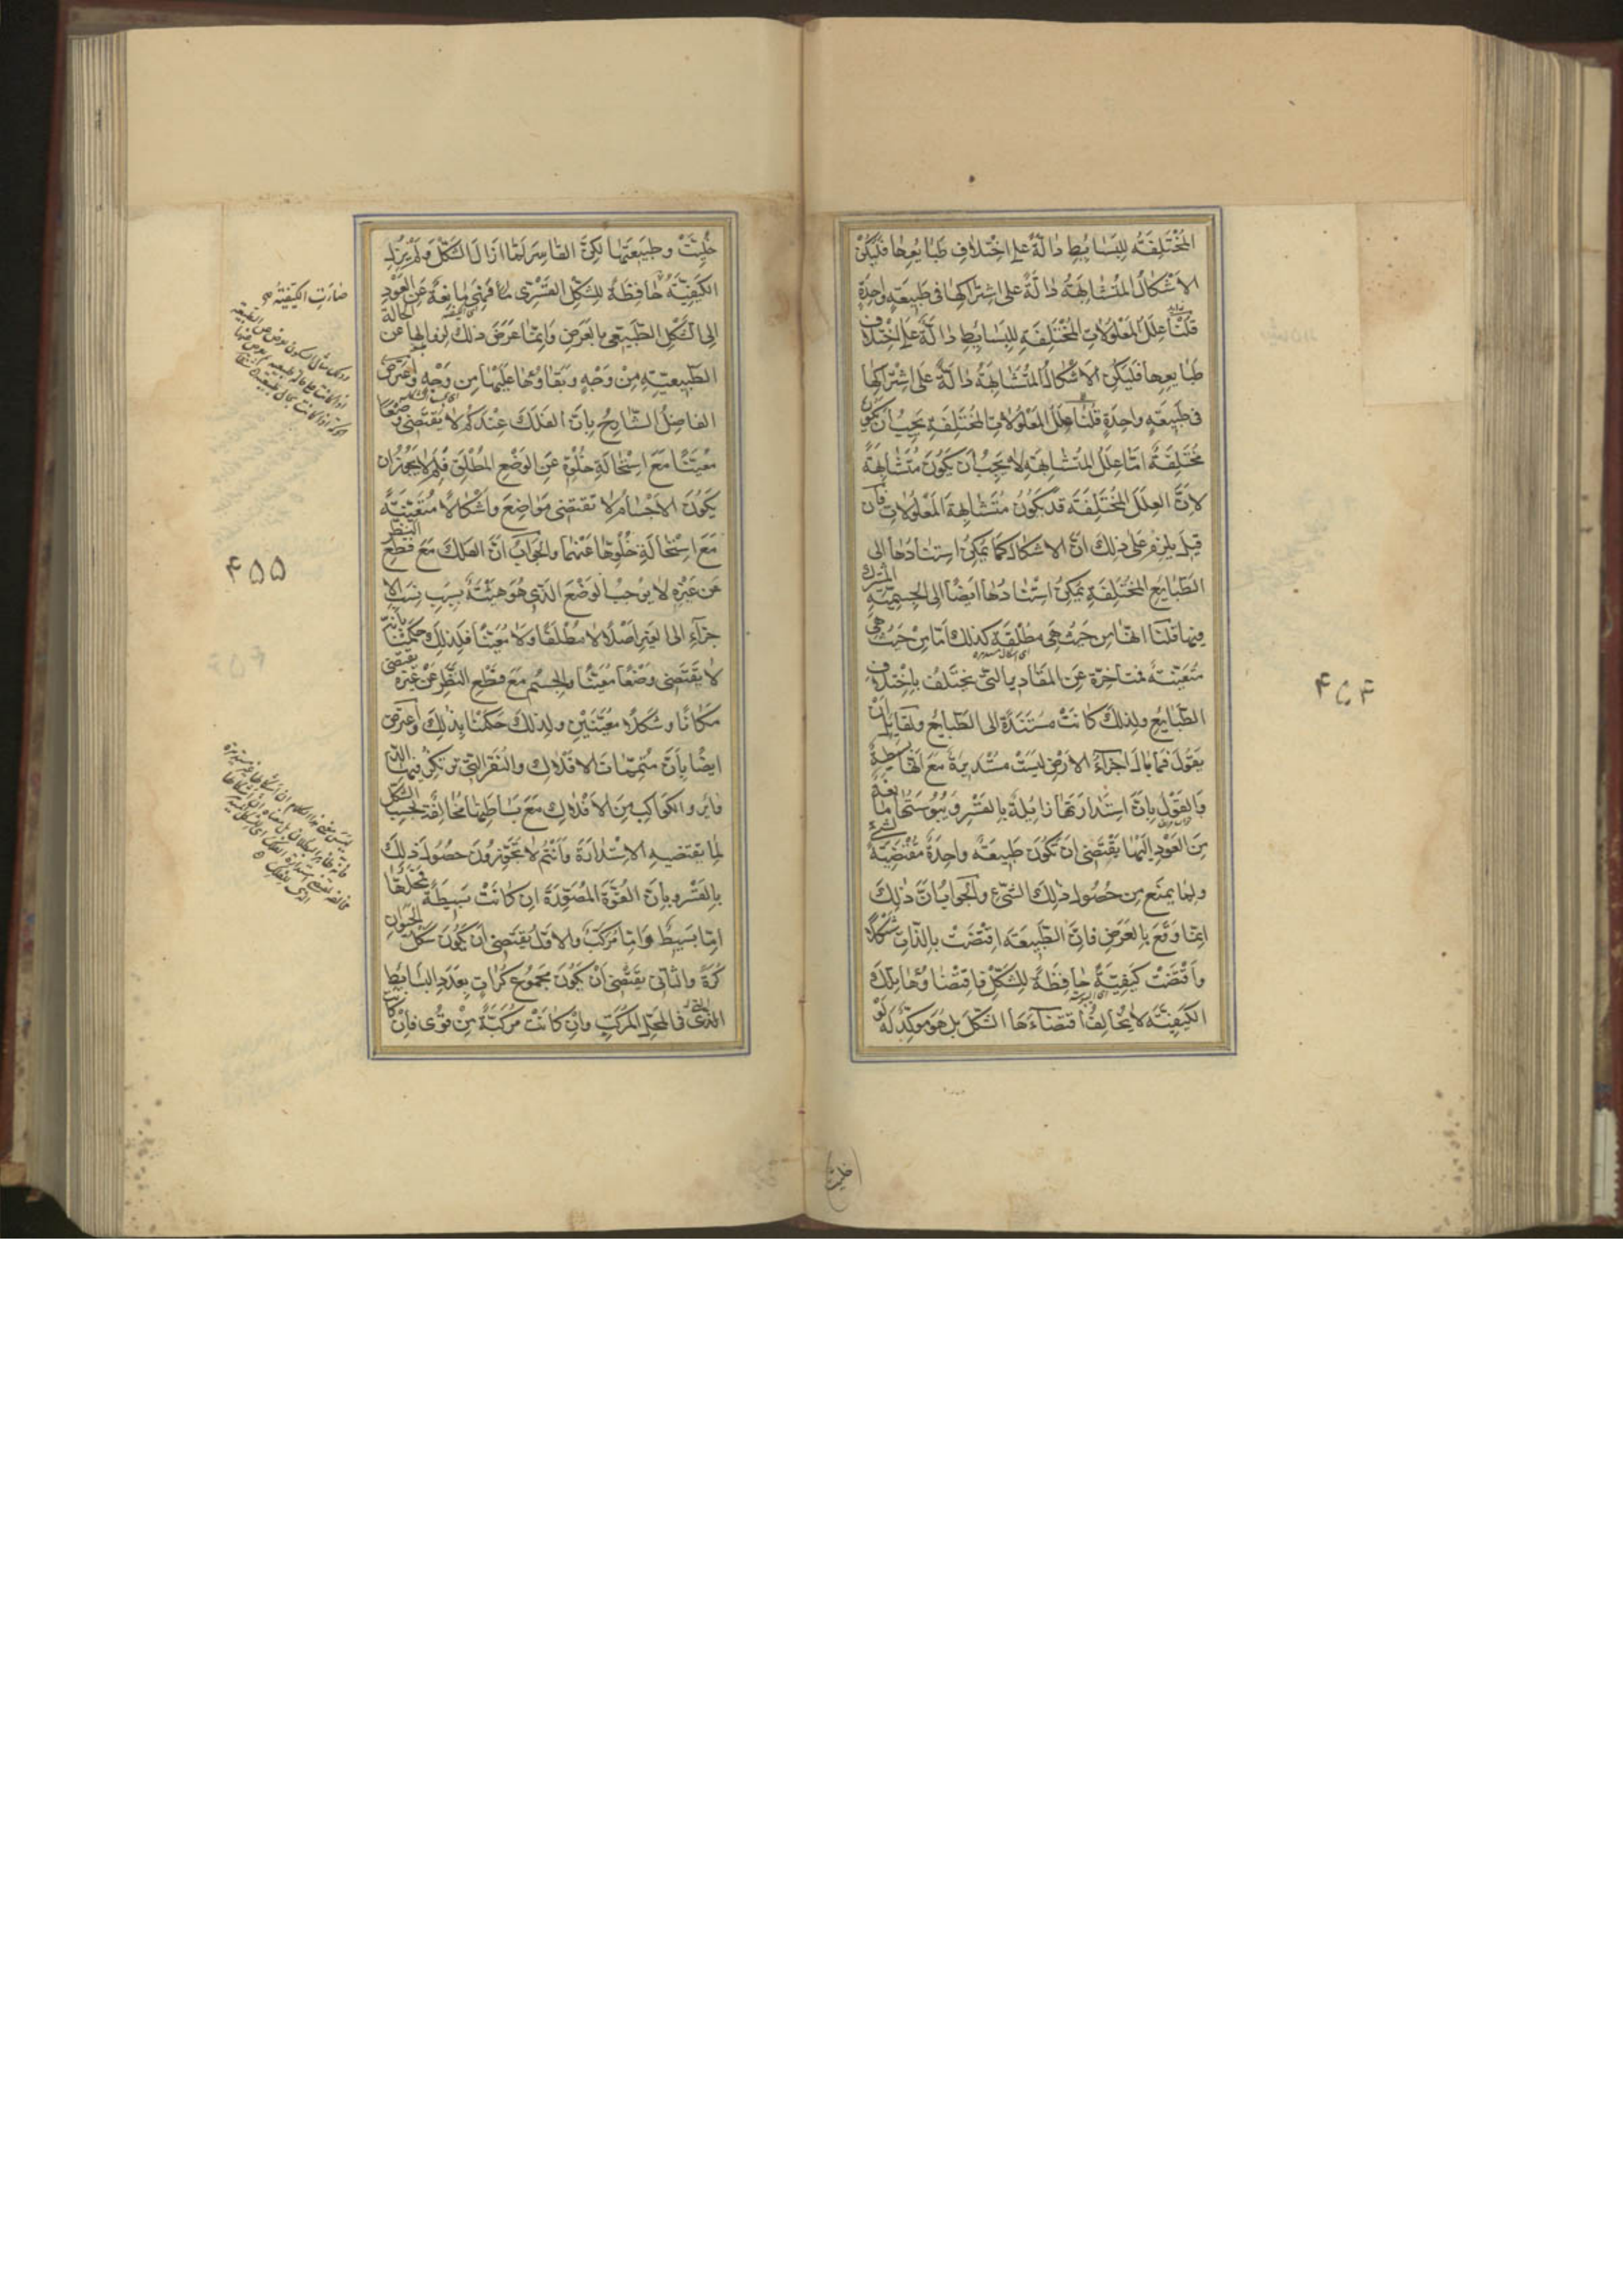 المختلفة للبسايط دالة على اختلاف طبايعها فليكن
الاشكال المتشابهة دالة على اشتراكها في طبيعة واحدة
قلنا علل المعلولات المختلفة للبسايط دالة على اختلاف
طبايعها فليكن الاشكال المتشابهة دالة على اشتراكها
في طبيعة واحدة قلنا علل المعلولات المختلفة يجب أن تكون
مختلفة امّا علل المتشابهة لا يجب أن يكون متشابهة
لانّ العلل المختلفة قد يكون متشابهة المعلولات فان
قيل يلزم على ذلك انّ الاشكال كما يمكن استنادها الى
الطبايع المختلفة يمكن استنادها ايضا الى الجسمية المشترك
فيها قلنا انها من حيث هي مطلقة كذلك امّا من حيث هي
متعيّنة فمتاخرة عن المقادير التي يختلف باختلاف
الطبايع ولذلك كانت مستندة الى الطبايع ولقايل ان
يقول فما بال اجزاء الارض ليست مستديرة مع انها بسيطة
والقول بانّ استدارتها زايلة بالقسر ويبوستها مانعة
من العود اليها يقتضي ان تكون طبيعة واحدة مقتضية لشيء
ولما يمنع من حصول ذلك الشيء والجواب انّ ذلك
انّما وقع بالعرض فانّ الطبيعة اقتضت بالذات شكلا
واقتضت كيفيّة حافظة للشكل فاقتضاؤها لتلك
الكيفيّة لا يخالف اقتضاءها الشكل بل هو موكّد له لو
۴۵۴
خليت
خليت وطبيعتها لكنّ القاسر لمّا ازال الشكل ولم يزل
الكيفيّة حافظة للشكل القسري فهي مانعة عن العود
الى الشكل الطبيعي بالعرض وانّما عرض ذلك لزوالها عن الحالة
الطبيعيّة من وجه وبقاؤها عليها من وجه واعترض
الفاضل الشارح بانّ الفلك عندكم لا يقتضي وضعا
معيّنا مع استحالة خلوّه عن الوضع المطلق فلم لا يجوز ان
يكون الاجسام لا تقتضي مواضع واشكالا متعيّنة
مع استحالة خلوّها عنهما والجواب انّ الفلك مع قطع النظر
عن غيره لا يوجب الوضع الذي هو هيئة بسبب نسب الا
جزاء الى الغير اصلا لا مطلقا ولا معيّنا فلذلك حكمنا بانه
لا يقتضي وضعا معيّنا والجسم مع قطع النظر عن غيره يقتضي
مكانا وشكلا معيّنين ولذلك حكمنا بذلك واعترض
ايضا بانّ متمّمات الافلاك والنقر التي تركّز فيها التد
واير والكواكب من الافلاك مع بساطتها مخالفة بحسب الشكل
لما يقتضيه الاستدارة وانتم لا تجوّزون حصول ذلك
بالقسر وبانّ القوّة المصوّرة ان كانت بسيطة فمحلّها
امّا بسيط وامّا مركّب والاوّل يقتضي ان يكون شكل الحيوان
كرة والثاني يقتضي ان يكون مجموع كرات بعدد البسايط
التي في المحل المركّب وان كانت مركّبة من قوى فان كانت
صارت الكيفيّة
۴۵۵